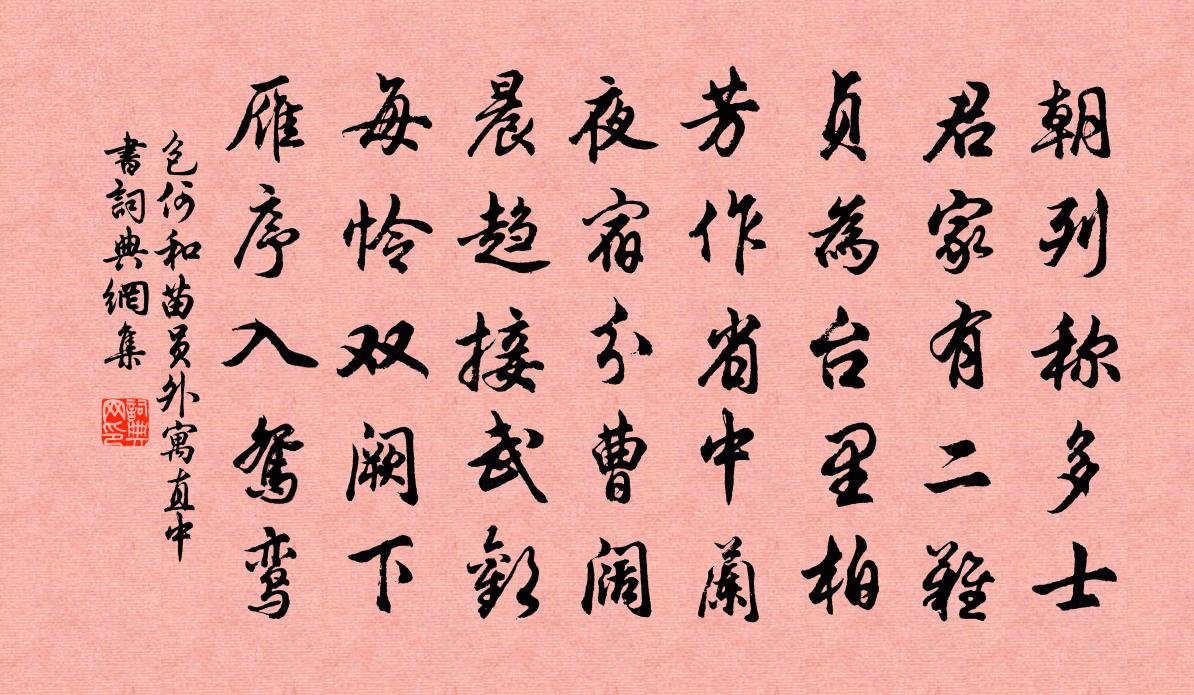 朝列称多士
君家有二难
贞為台里柏
芳作省中蘭
夜宿分曹阔
晨趋接武歡
每怜双阙下
雁序入鸳鸾
包何和苗员外寓直中
書詞典網集
詞典
网印